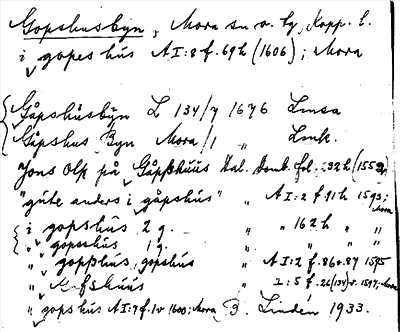 Gopshusbyn, Mora sn o. tg, Kopp. l.
i gopes hús A I:8 f. 69 h (1606); Mora
Gåpshúsbÿn L 134/7 1676 Linsa
Gåpshus Byn Mora/1 " Link.
Jons Olß på Gåpßhúús Dal. Domb. fol.: 32 h (1559)
"gúte anders i gåpshús" " A I:2 f. 91 h 1593; Mora
i gopshús 2 g. " " 162 h " "
" gopsshús 1 g. " " " " "
" gopßhús, gopshús " A I:2 f. 86 o. 87 1575
" fshúús " I:5 f. 26 v. 1597; Mora
" gops hús A I:7 f. 1 v 1600; Mora B. Lindén 1933.